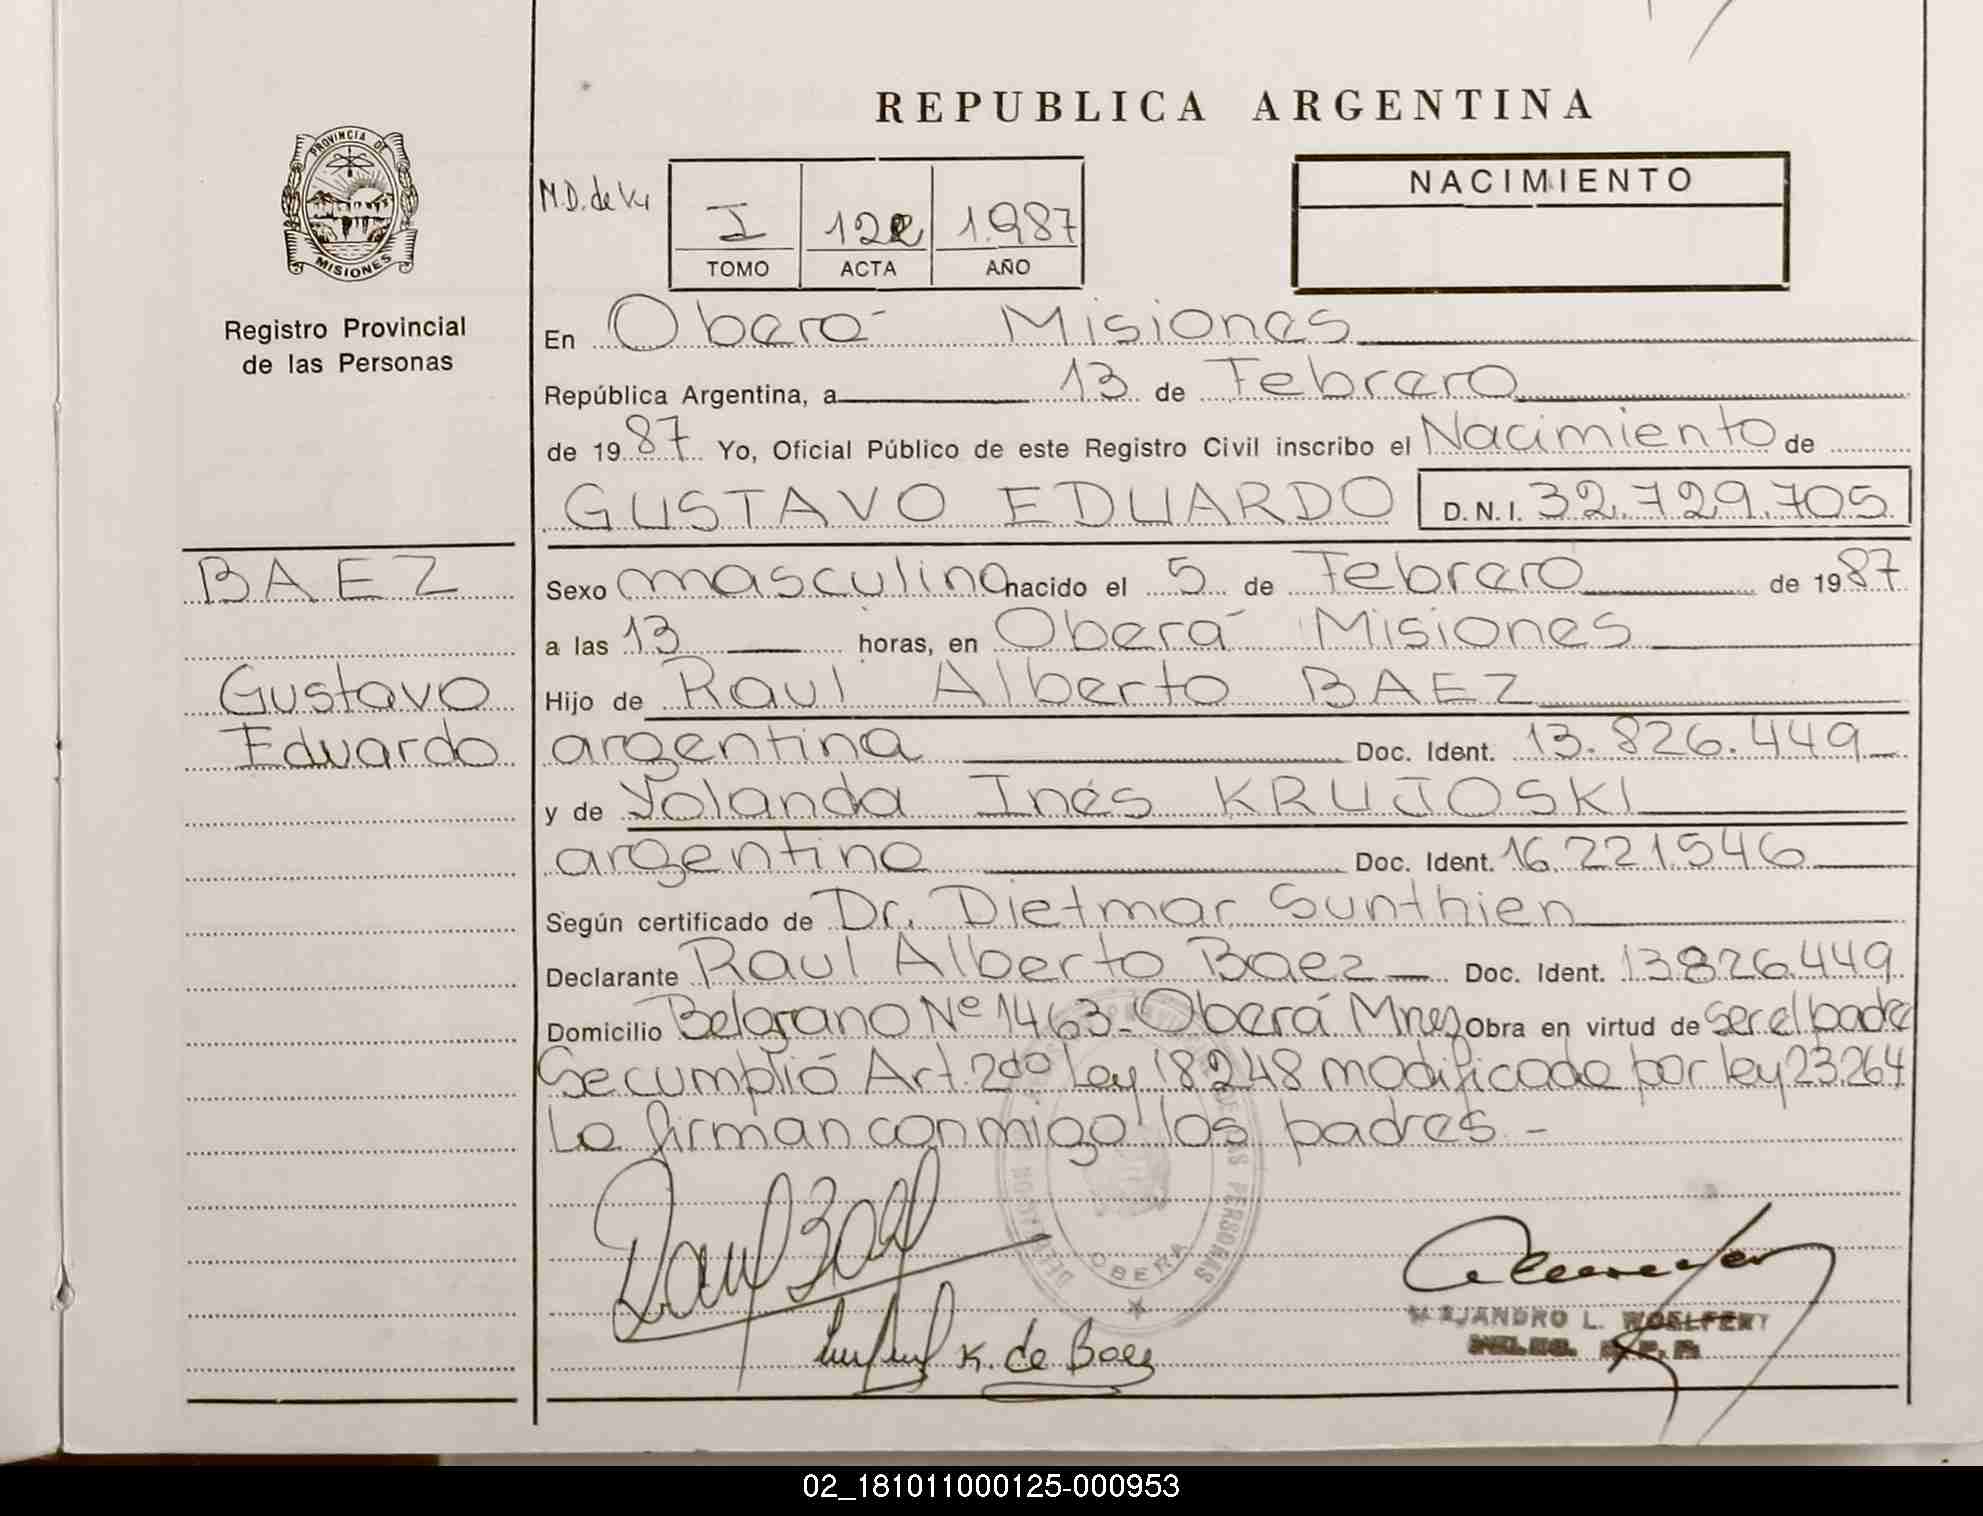 REPUBLICA ARGENTINA
PROVINCIA DE
MISIONES
Registro Provincial
de las Personas
M.D. de
I 122 1.987
TOMO ACTA AÑO
NACIMIENTO
En Oberá Misiones
República Argentina, a 13 de Febrero
de 1987 Yo, Oficial Público de este Registro Civil inscribo el Nacimiento de
GUSTAVO EDUARDO D.N.I. 32.729.705
BAEZ
Gustavo
Eduardo
Sexo masculino nacido el 5 de Febrero de 1987
a las 13 horas, en Oberá Misiones
Hijo de Raul Alberto BAEZ
argentina Doc. Ident. 13.826.449
y de Yolanda Inés KRUJOSKI
argentina Doc. Ident. 16.221.546
Según certificado de Dr. Dietmar Sunthien
Declarante Raul Alberto Baez Doc. Ident. 13.826.449
Domicilio Belgrano Nº 1463 - Oberá Mnes Obra en virtud de ser el padre
Se cumplió Art. 2do Ley 18248 modificada por ley 23.264
Lo firman conmigo los padres.-
Raul Baez
K. de Baez
OBERA
DE LAS PERSONAS
ALEJANDRO L. WOELFERT
02_181011000125-000953